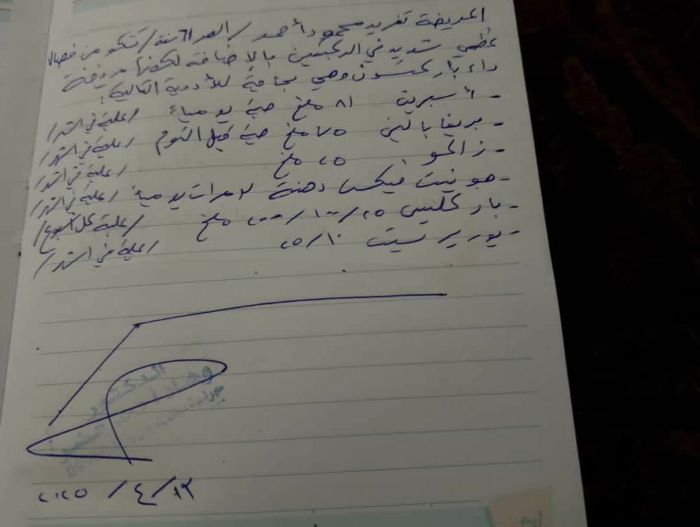 المريضة تغريد محمود أحمد / العمر ٦١ سنة / تشكو من فصال
عظمي شديد في الركبتين بالإضافة لكونها مريضة
داء باركنسون وهي بحاجة للأدوية التالية:
- أسبرين ٨١ ملغ حبة يومياً / علبة في الشهر /
- بريغابالين ٧٥ ملغ حبة قبل النوم / علبة في الشهر /
- ٢٥ ملغ / علبة في الشهر /
- جوينت فيكس دهنة ٣ مرات يومياً / علبة في الشهر /
- باركليس ٢٥ / ١٠٠ / ٢٠٠ ملغ / علبة كل أسبوع /
- ١٠ / ٢٥ / علبة في الشهر /
الدكتور
٢٠٢٥ / ٤ / ١٣